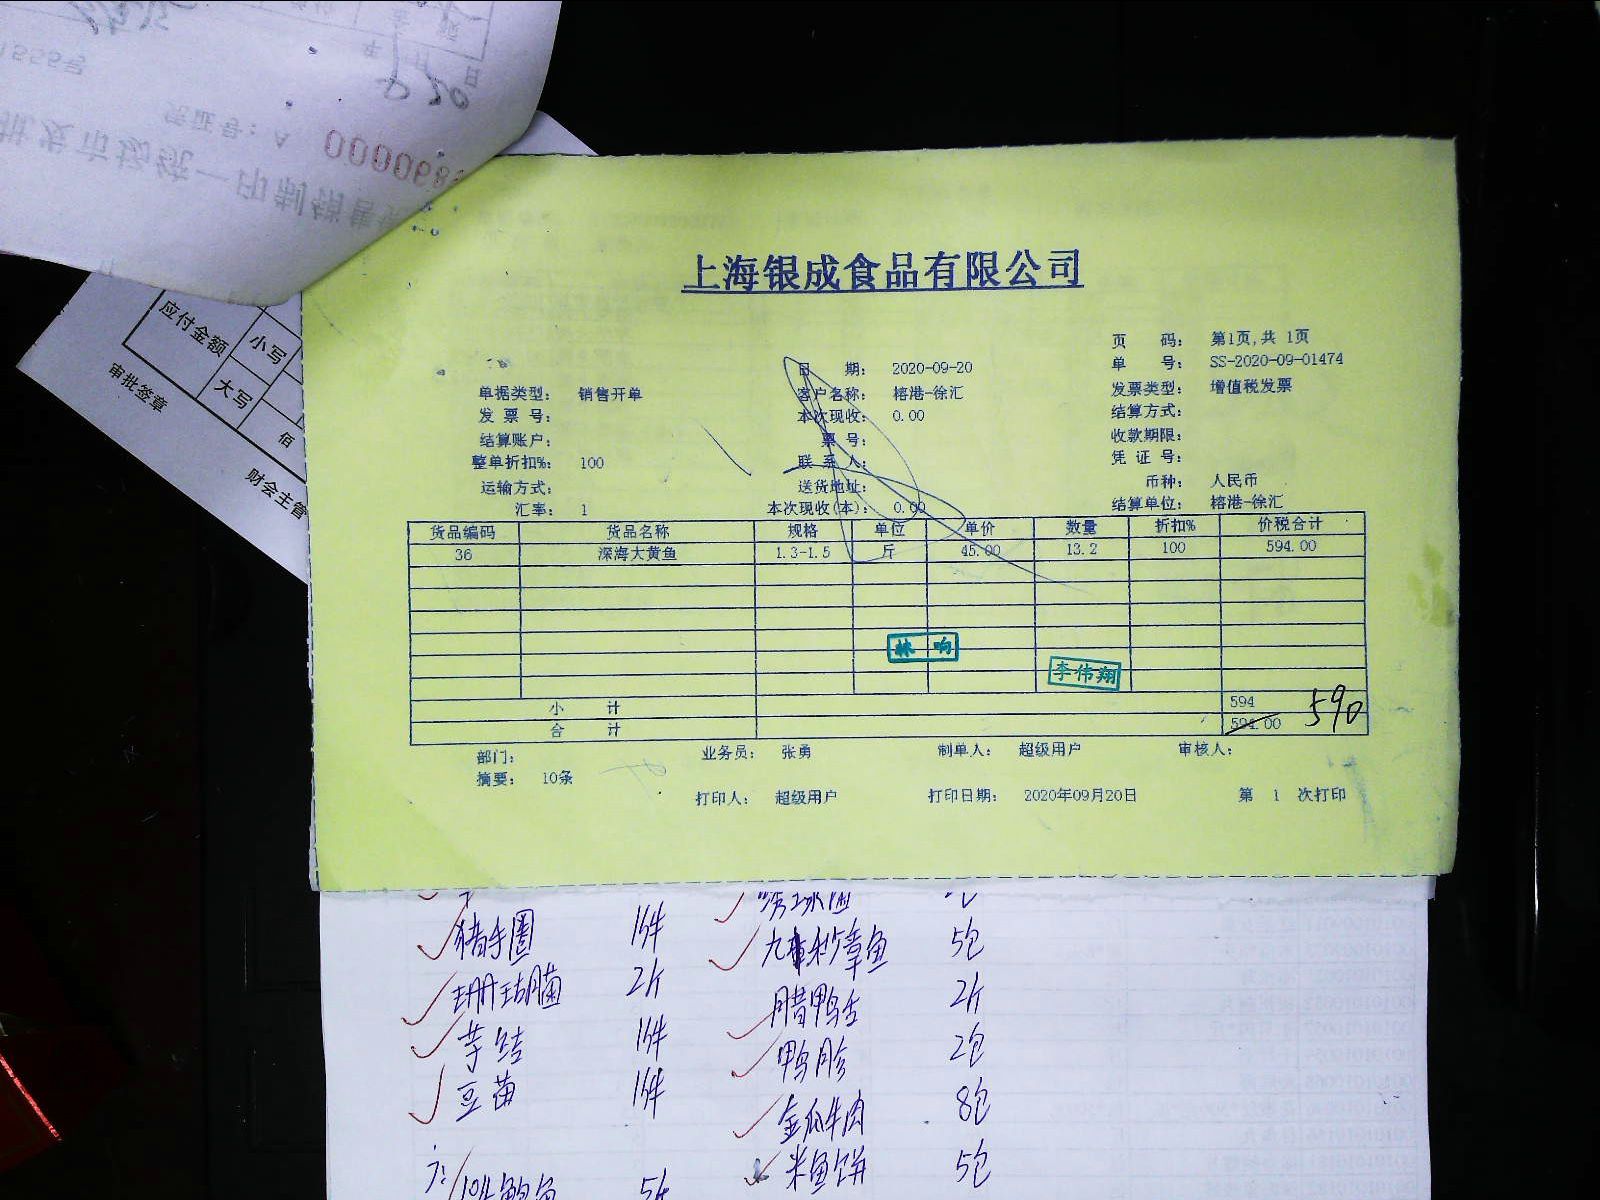 批发市场统一印制销售
凭证号：A 0000068
年 月 20 日
应付金额 小写
大写
佰
审批签章
财会主管
上海银成食品有限公司
页 码： 第1页,共 1页
日 期： 2020-09-20 单 号： SS-2020-09-01474
单据类型： 销售开单 客户名称： 榕港-徐汇 发票类型： 增值税发票
发 票 号： 本次现收： 0.00 结算方式：
结算账户： 票 号： 收款期限：
整单折扣%： 100 联 系 人： 凭 证 号：
运输方式： 送货地址： 币种： 人民币
汇率： 1 本次现收(本)： 0.00 结算单位： 榕港-徐汇
货品编码 货品名称 规格 单位 单价 数量 折扣% 价税合计
36 深海大黄鱼 1.3-1.5 斤 45.00 13.2 100 594.00
林 响
李伟翔
小 计 594
合 计 594.00 590
部门： 业务员： 张勇 制单人： 超级用户 审核人：
摘要： 10条
打印人： 超级用户 打印日期： 2020年09月20日 第 1 次打印
猪手圈 1件 5包
珊瑚菌 2斤 腊鸭舌 2斤
芋结 1件 鸭胗 2包
豆苗 1件 金瓜牛肉 8包
米鱼饼 5包